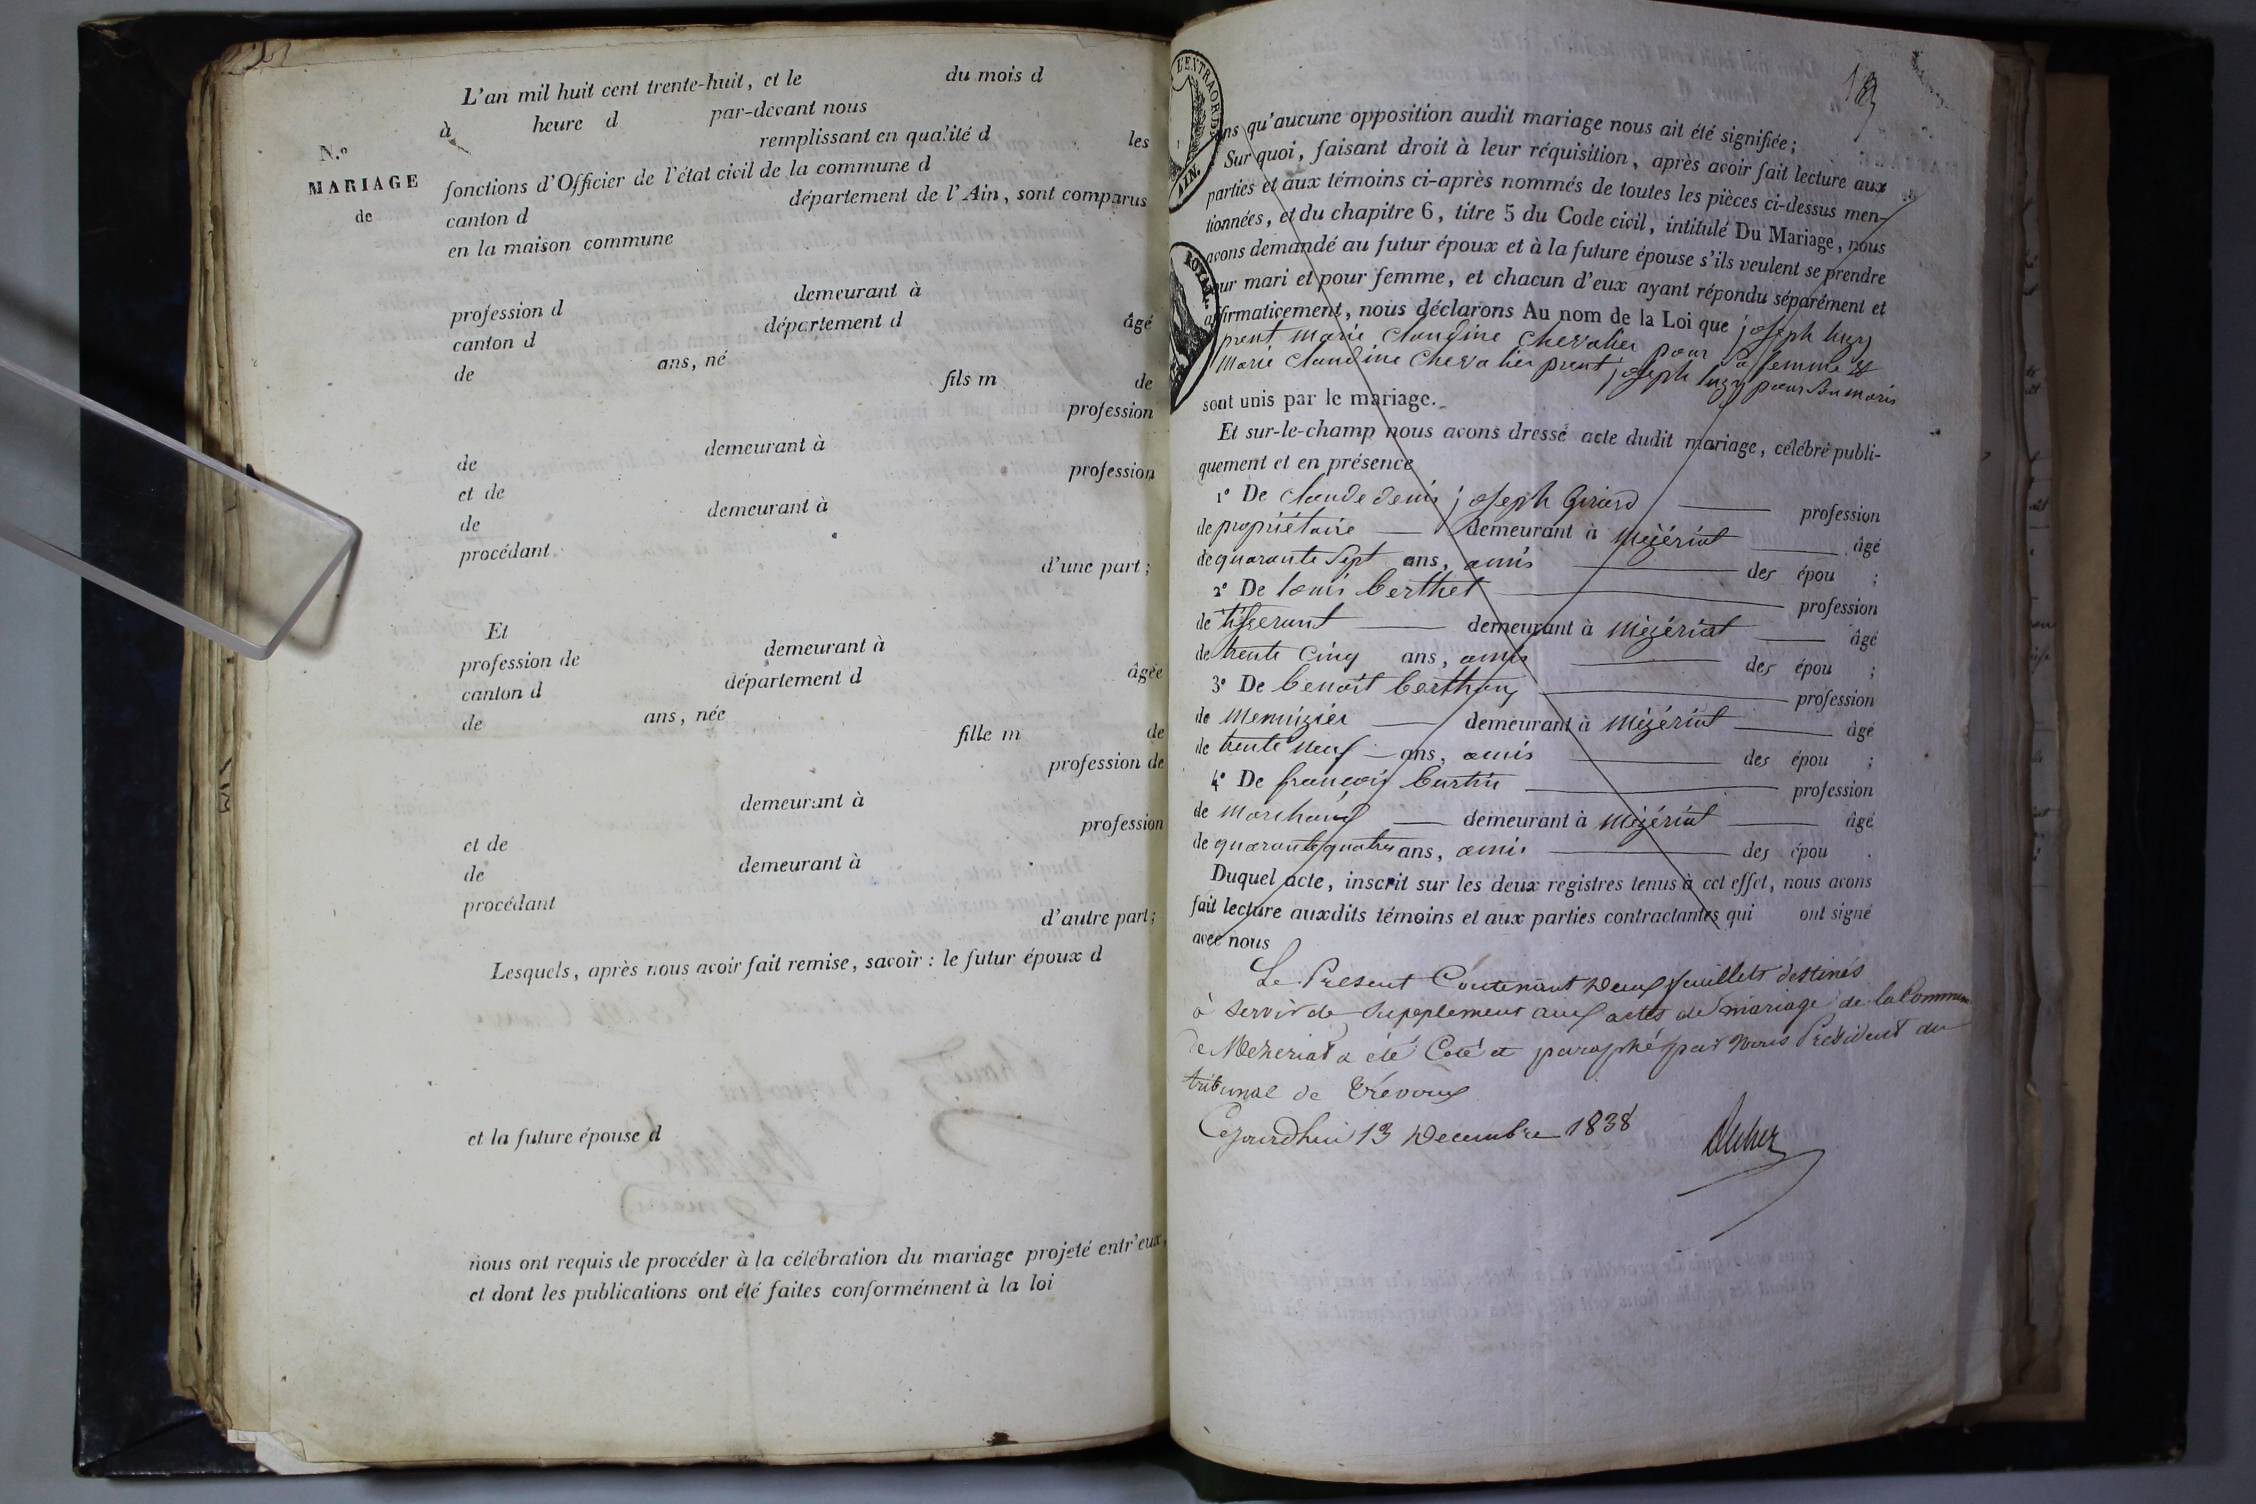 L'an mil huit cent trente-huit, et le du mois d
à heure d par-devant nous
remplissant en qualité d les
N.o
MARIAGE
de
fonctions d'Officier de l'état civil de la commune d
canton d département de l'Ain, sont comparus
en la maison commune
profession d demeurant à
canton d département d âgé
de ans, né
fils m de
profession
de demeurant à
et de profession
de demeurant à
procédant
d'une part;
Et
profession de demeurant à
canton d département d âgée
de ans, née
fille m de
profession de
demeurant à
et de profession
de demeurant à
procédant
d'autre part;
Lesquels, après nous avoir fait remise, savoir : le futur époux d
et la future épouse d
nous ont requis de procéder à la célébration du mariage projeté entr'eux,
et dont les publications ont été faites conformément à la loi
L'EXTRAORD.
AIN.
ROYAL.
ns qu'aucune opposition audit mariage nous ait été signifiée;
Sur quoi, faisant droit à leur réquisition, après avoir fait lecture aux
parties et aux témoins ci-après nommés de toutes les pièces ci-dessus men-
tionnées, et du chapitre 6, titre 5 du Code civil, intitulé Du Mariage, nous
avons demandé au futur époux et à la future épouse s'ils veulent se prendre
ur mari et pour femme, et chacun d'eux ayant répondu séparément et
affirmativement, nous déclarons Au nom de la Loi que joseph luzy
prent marie claudine chevalier pour sa femme et
marie claudine chevalier prent joseph luzy pour son maris
sont unis par le mariage.
Et sur-le-champ nous avons dressé acte dudit mariage, célébré publi-
quement et en présence
1° De claude denis joseph Girard profession
de propriétaire demeurant à mézériat âgé
de quarante sept ans, amis des épou ;
2° De louis berthet profession
de tisserant demeurant à mézériat âgé
de trente cinq ans, amis des épou ;
3° De benoit berthouz profession
de menuizier demeurant à mézériat âgé
de trente neuf ans, amis des épou ;
4° De françois burtin profession
de marchand demeurant à mézériat âgé
de quarante quatre ans, amis des épou .
Duquel acte, inscrit sur les deux registres tenus à cet effet, nous avons
fait lecture auxdits témoins et aux parties contractantes qui ont signé
avec nous
Le Present Contenant deux feuillets destinés
à servir de supeplement aux actes de mariage de la Commune
de Mezeriat a été Coté et paraphé par Nous Président du
tribunal de Trévoux
Cejourdhui 13 Decembre 1838